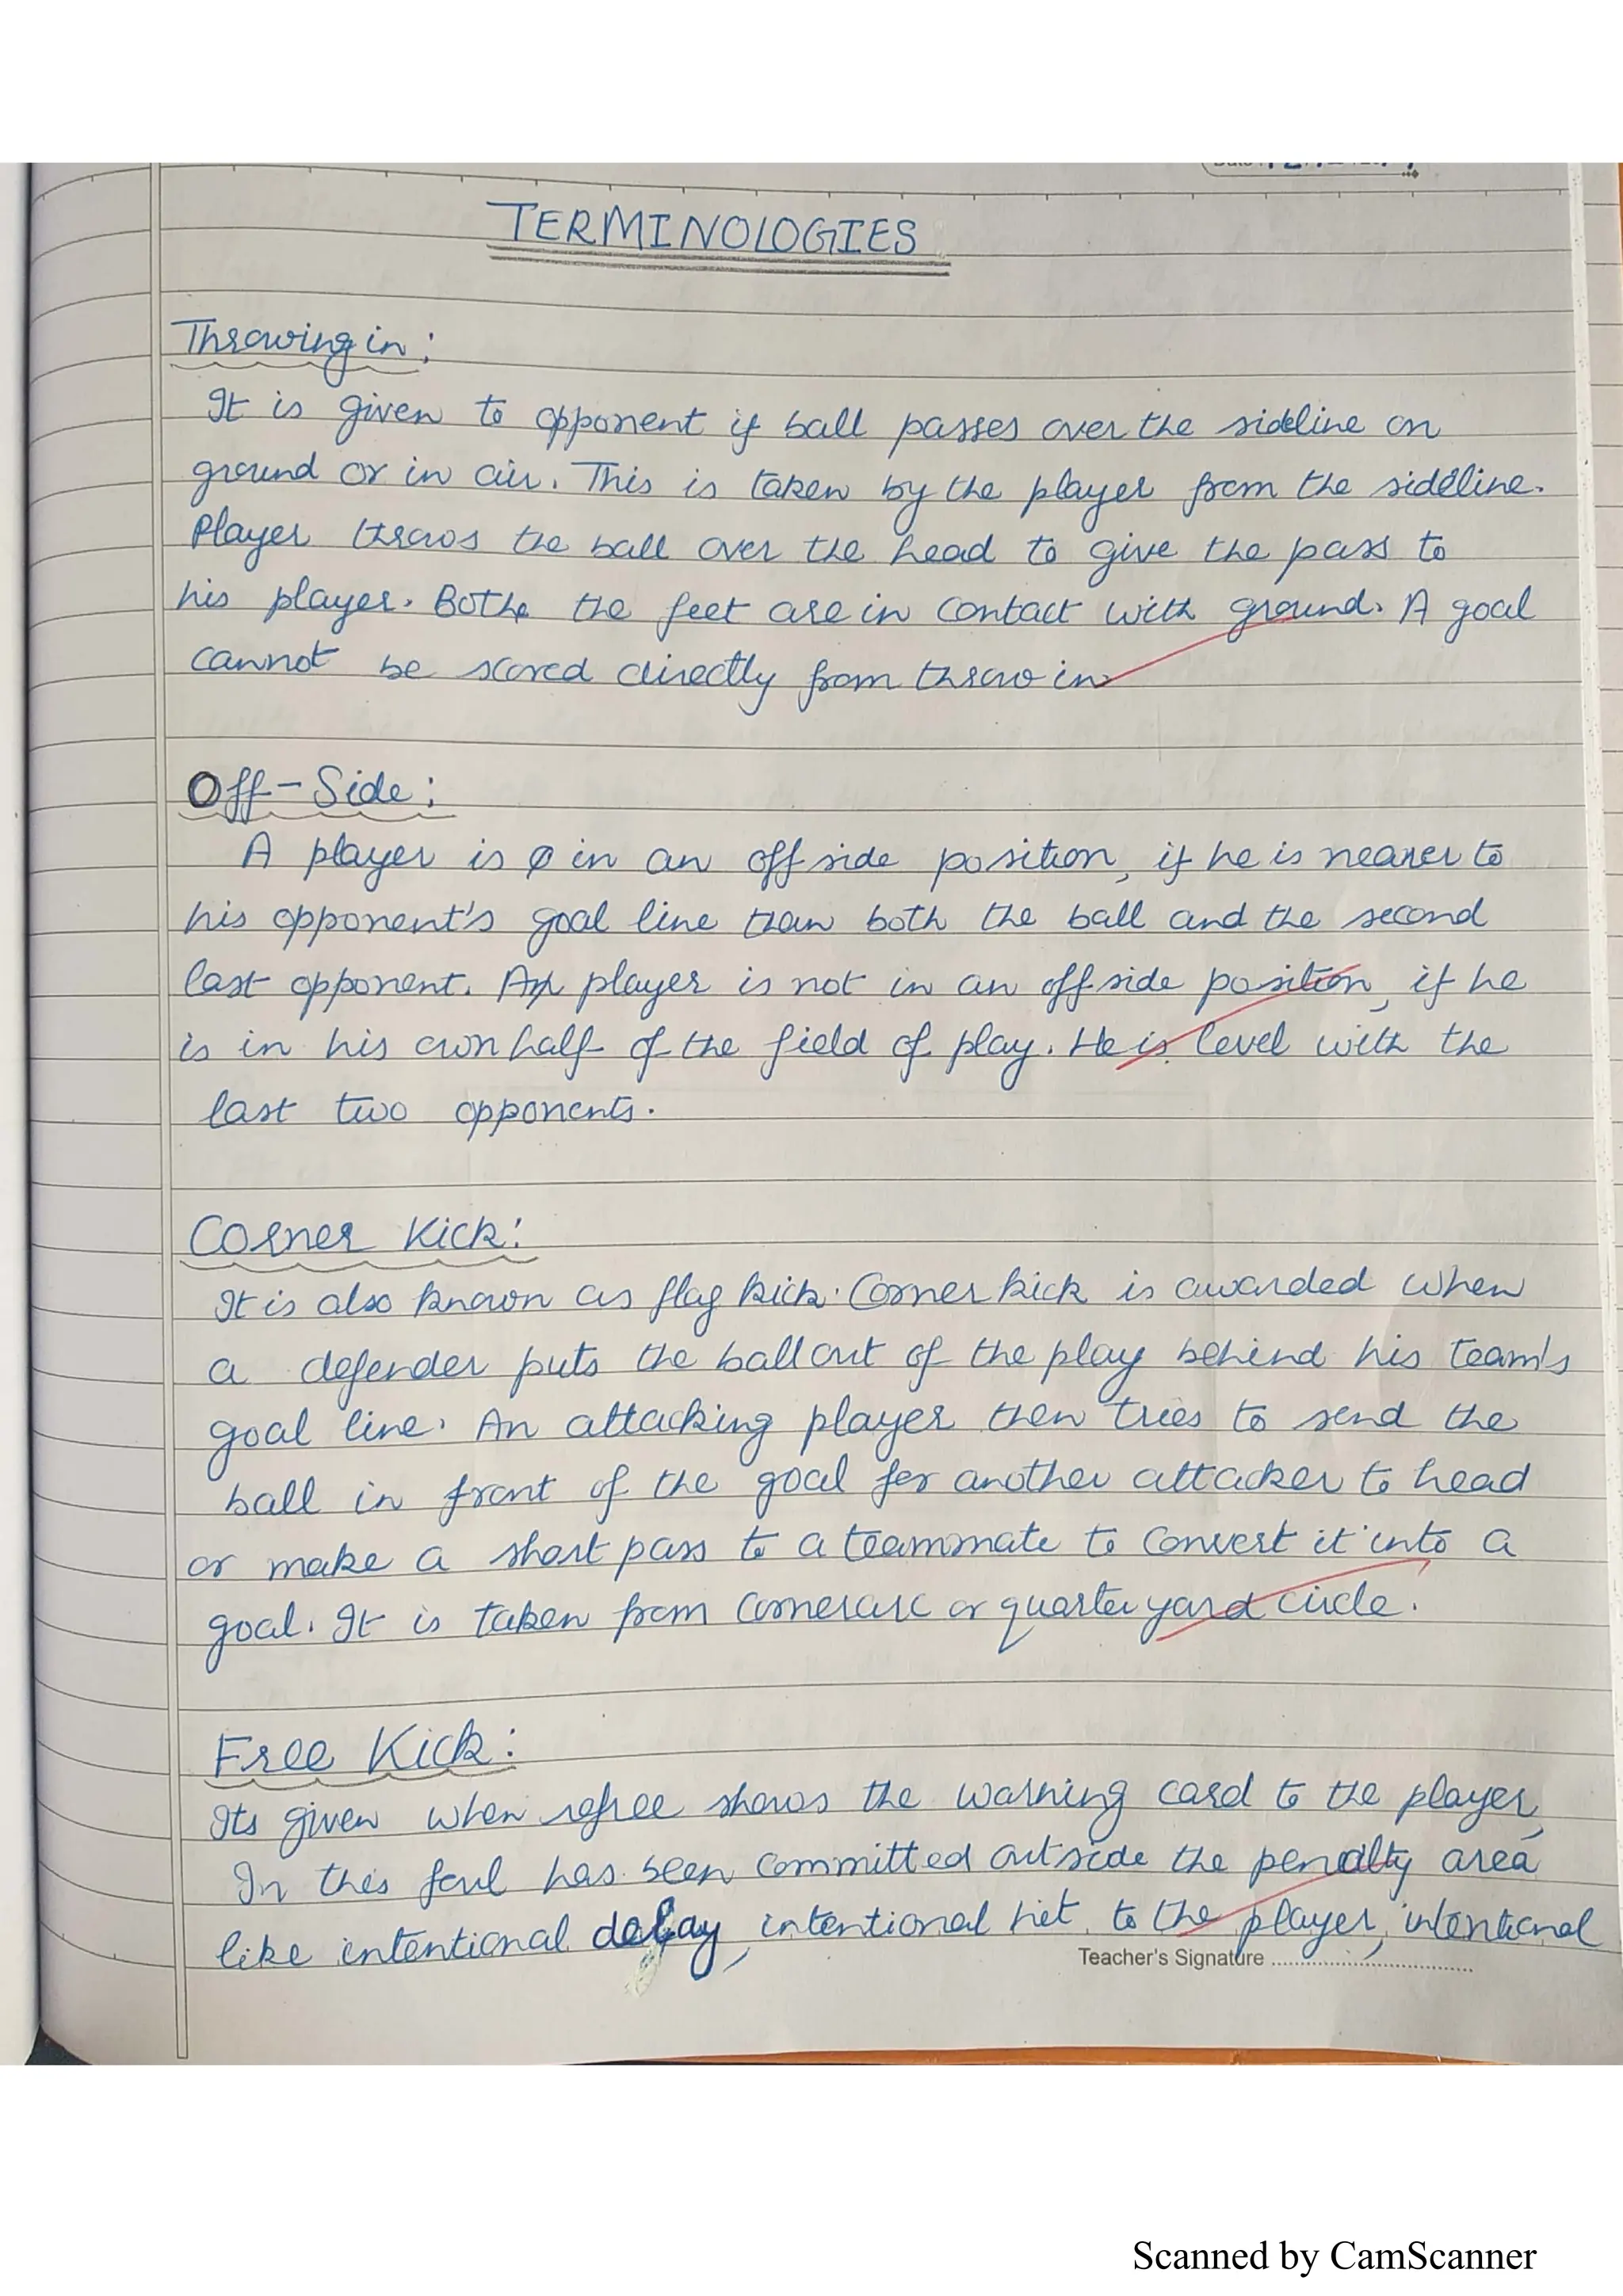 TERMINOLOGIES
Throwing in:
It is given to opponent if ball passes over the sideline on
ground or in air. This is taken by the player from the sideline.
Player throws the ball over the head to give the pass to
his player. Bothe the feet are in contact with ground. A goal
cannot be scored directly from throw in
Off-Side:
A player is in an off side position, if he is nearer to
his opponent's goal line than both the ball and the second
last opponent. A player is not in an off side position, if he
is in his own half of the field of play. He is level with the
last two opponents.
Corner Kick:
It is also known as flag kick. Corner kick is awarded when
a defender puts the ball out of the play behind his team's
goal line. An attacking player then tries to send the
ball in front of the goal for another attacker to head
or make a short pass to a teammate to convert it into a
goal. It is taken from cornerarc or quarter yard circle.
Free Kick:
Its given when refree shows the warning card to the player,
In this foul has been committed outside the penalty area
like intentional delay, intentional hit to the player, intentional
Teacher's Signature
Scanned by CamScanner